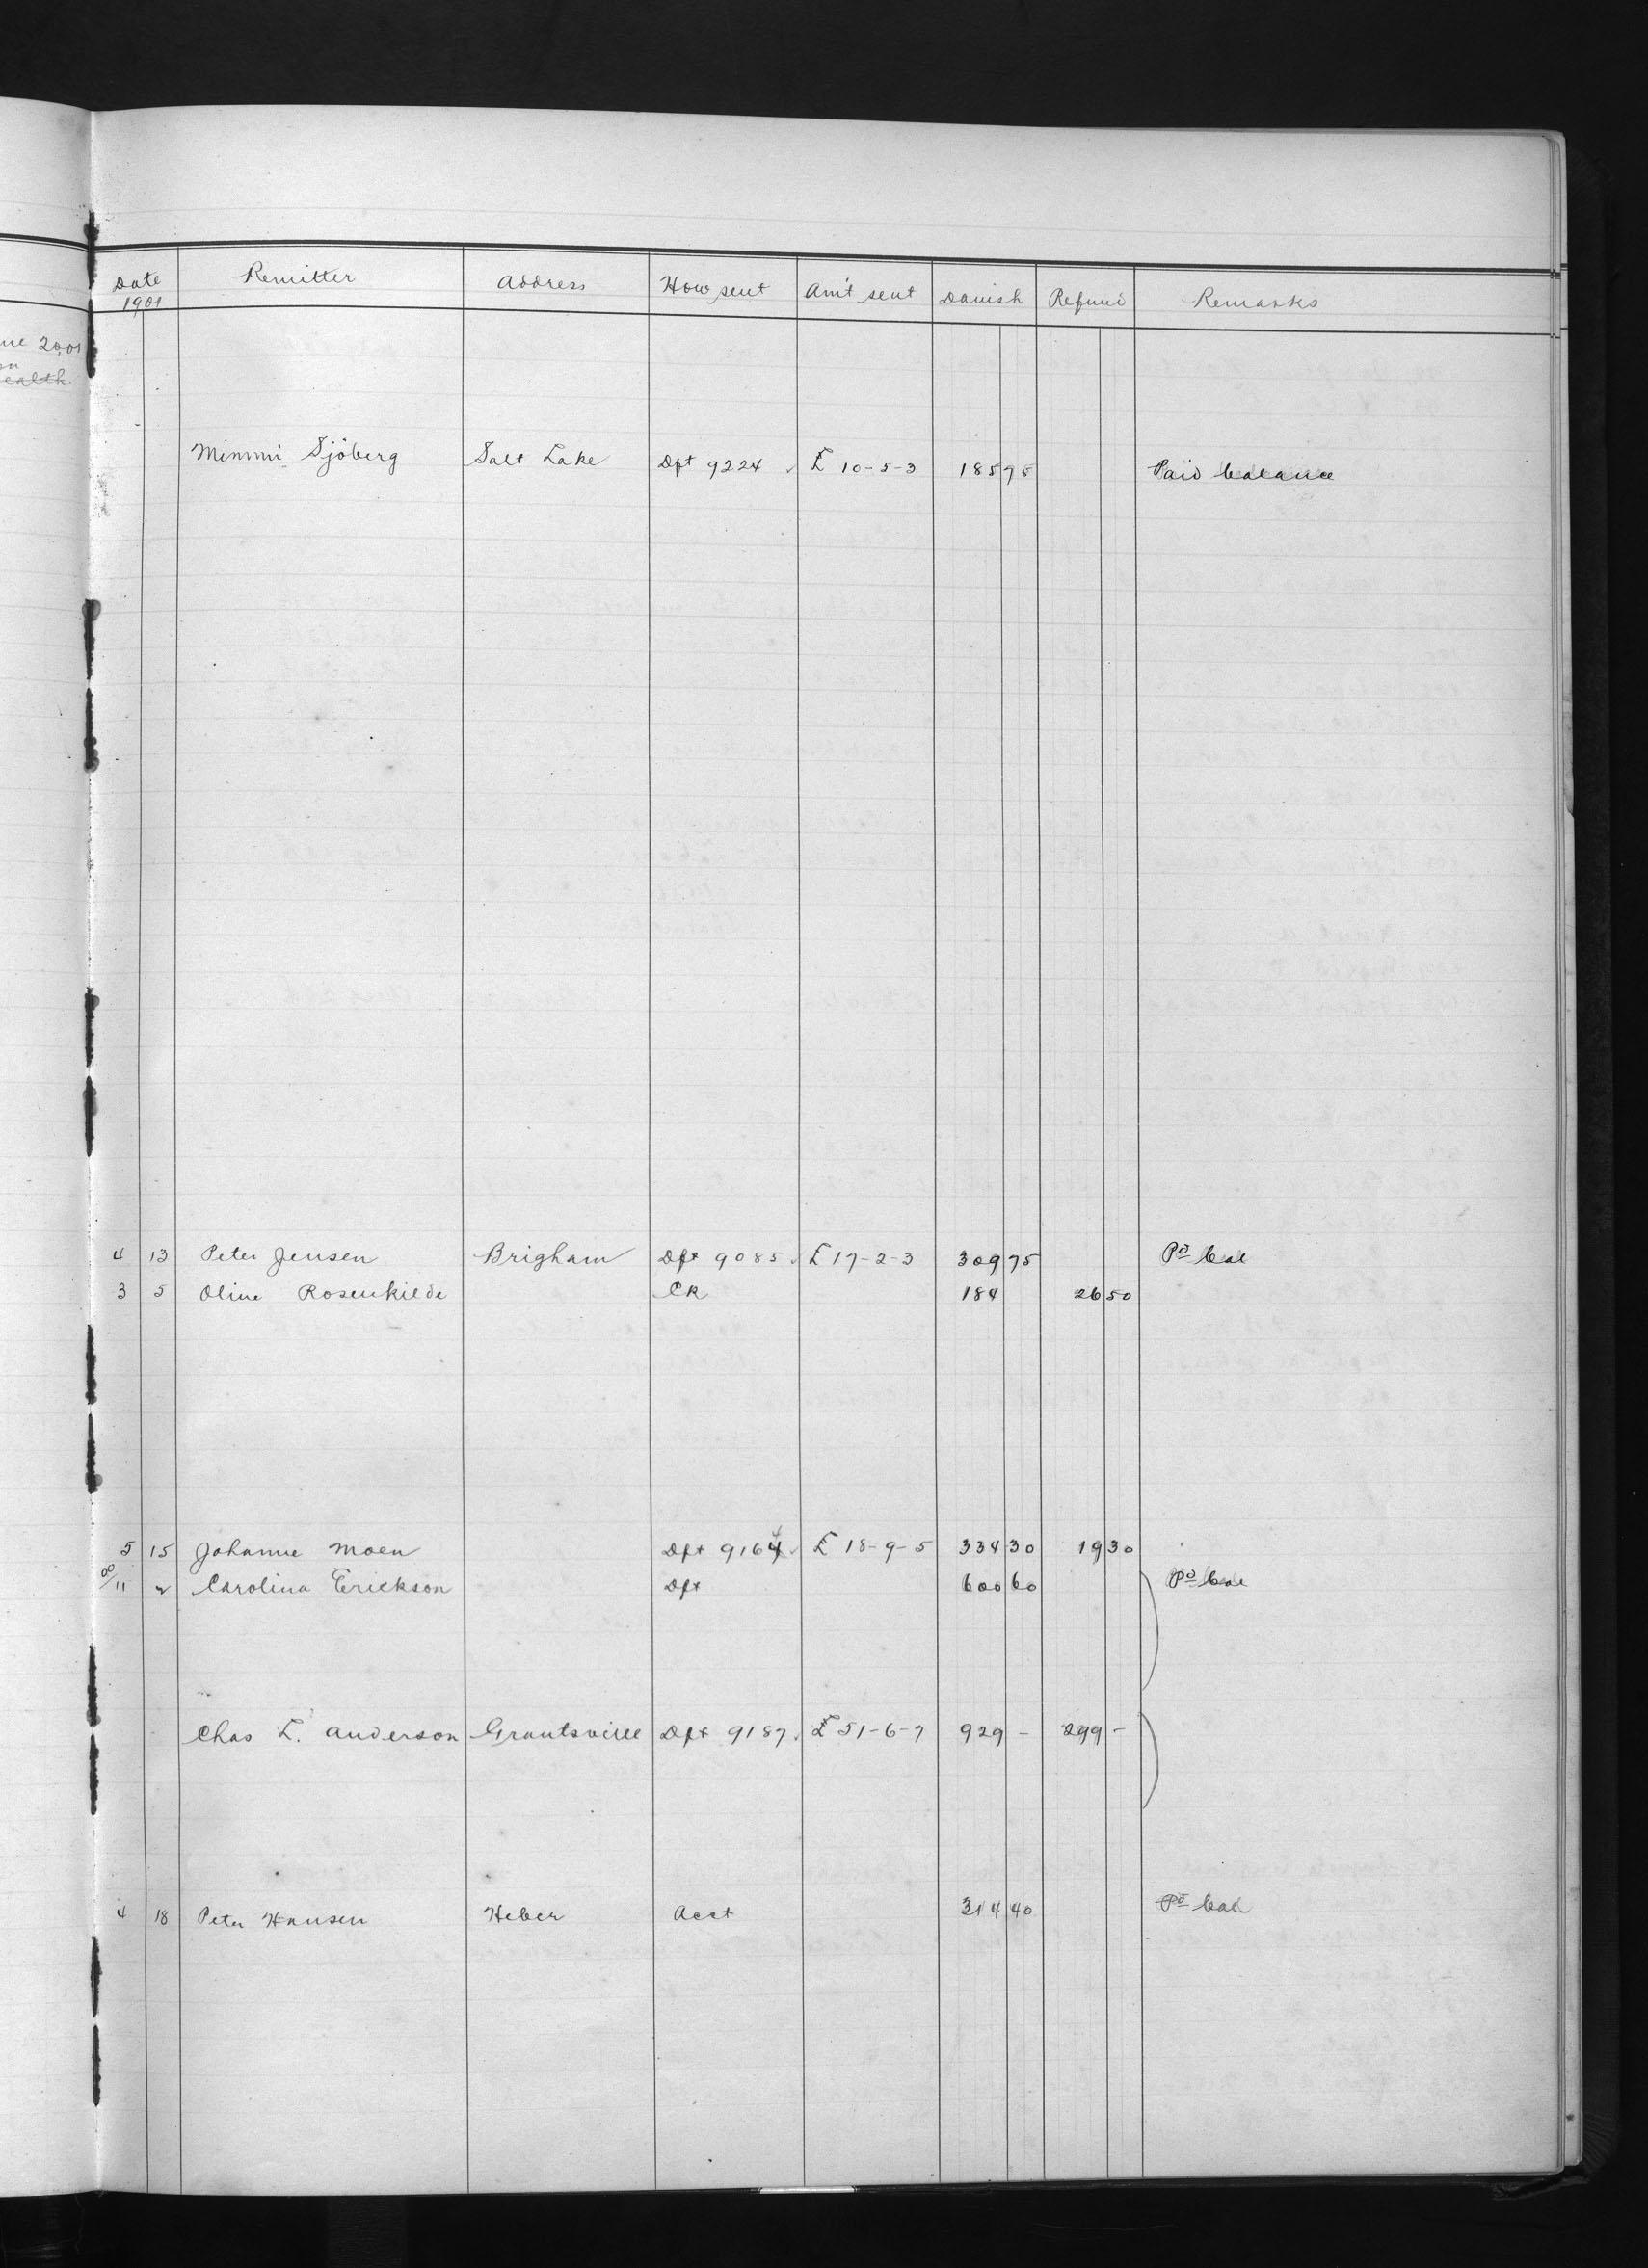 ne 20,01
on
ealth.
Date Remitter Address How sent Am't sent Danish Refund Remarks
1901
Minmi Sjöberg Salt Lake Dft 9224 £ 10-5-3 185 75 Paid balance
4 13 Peter Jensen Brigham Dft 9085 £ 17-2-3 309 75 Pd bal
3 5 Oline Rosenkilde CK 184 26 50
5 15 Johanne Moen Dft 9164 £ 18-9-5 334 30 19 30
00/11 2 Carolina Erickson Dft 600 60 Pd bal
Chas L. Anderson Grantsville Dft 9187 £ 51-6-7 929 - 299 -
4 18 Peter Hansen Heber Acct 314 40 Pd bal